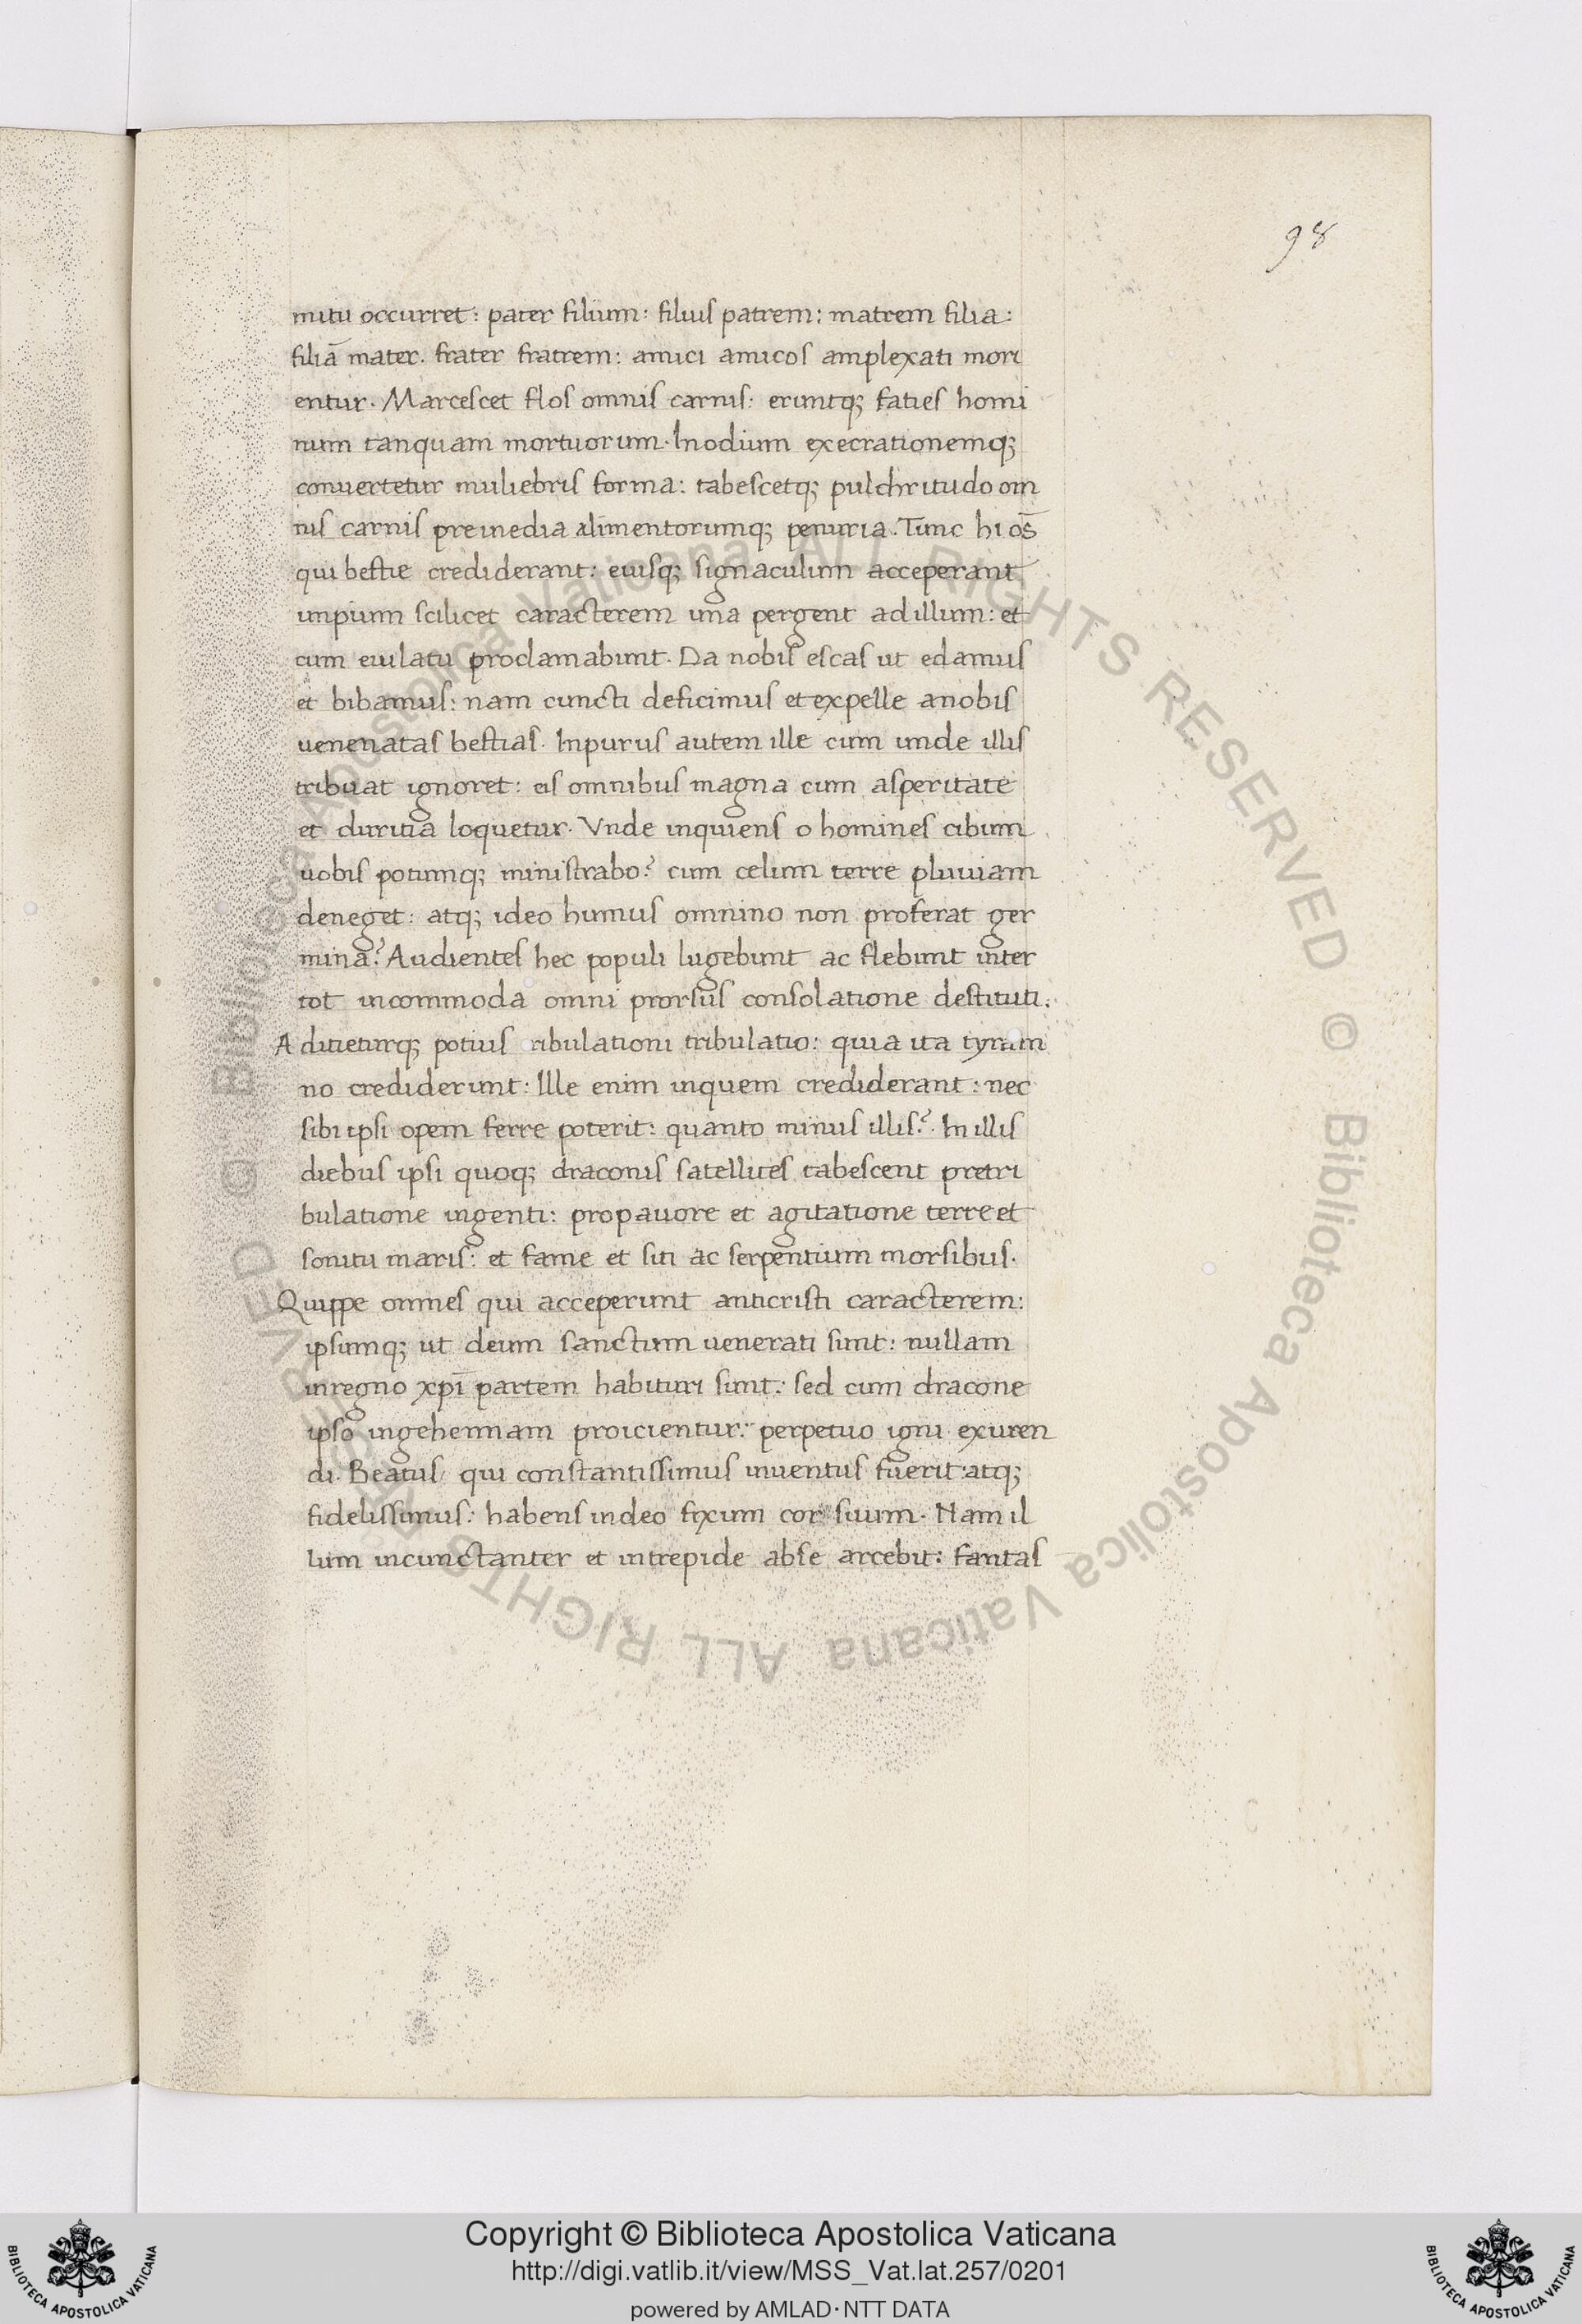 98
mitu occurret: pater filium: filius patrem: matrem filia:
filiā mater. frater fratrem: amici amicos amplexati mori
entur. Marcescet flos omnis carnis: eruntq; faties homi
num tanquam mortuorum. Inodium execrationemq;
conuertetur muliebris forma: tabescetq; pulchritudo om
nis carnis preinedia alimentorumq; penuria. Tunc hi oš
qui bestie crediderant: eiusq; signaculum acceperant
impium scilicet caracterem una pergent adillum: et
cum eiulatu proclamabunt. Da nobis escas ut edamus
et bibamus: nam cuncti deficimus et expelle anobis
uenenatas bestias. Inpurus autem ille cum unde illis
tribuat ignoret: eis omnibus magna cum asperitate
et duritia loquetur. Vnde inquiens o homines cibum
uobis potumq; ministrabo? cum celum terre pluuiam
deneget: atq; ideo humus omnino non proferat ger
mina? Audientes hec populi lugebunt ac flebunt inter
tot incommoda omni prorsus consolatione destituti.
Aditieturq; potius ribulationi tribulatio: quia ita tyran
no crediderunt: Ille enim inquem crediderant: nec
sibi ipsi opem ferre poterit: quanto minus illis?. In illis
diebus ipsi quoq; draconis satellites tabescent pretri
bulatione ingenti: propauore et agitatione terre et
sonitu maris: et fame et siti ac serpentium morsibus.
Quippe omnes qui acceperunt anticristi caracterem:
ipsumq; ut deum sanctum uenerati sunt: nullam
inregno xpī partem habituri sunt: sed cum dracone
ipso ingehennam proicientur: perpetuo igni exuren
di. Beatus qui constantissimus inuentus fuerit: atq;
fidelissimus: habens indeo fixum cor suum. Nam il
lum incunctanter et intrepide abse arcebit: fantas
© Biblioteca Apostolica Vaticana ALL RIGHTS RESERVED © Biblioteca Apostolica Vaticana ALL RIGHTS RESERVED
BIBLIOTECA APOSTOLICA VATICANA
Copyright © Biblioteca Apostolica Vaticana
http://digi.vatlib.it/view/MSS_Vat.lat.257/0201
powered by AMLAD·NTT DATA
BIBLIOTECA APOSTOLICA VATICANA